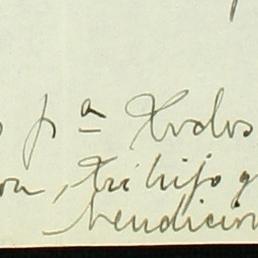 pª Todos
, Tu hijo q
bendicion